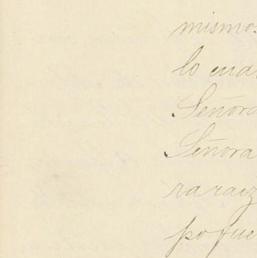 mismos
lo cual
Señora
Señora
ra raiz
po fue